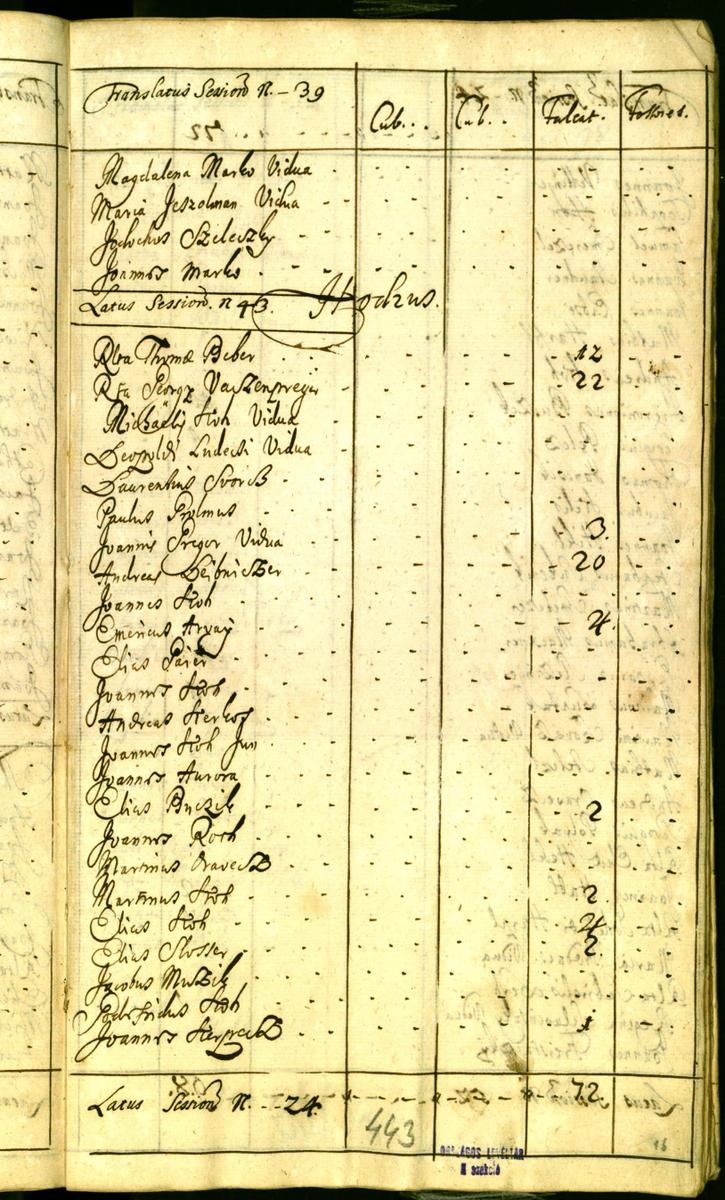 Translatus Session N. - 39
Cub. . . Cub. . . Falcat. Fossores.
Magdalena Marko Vidua
Maria Jeszelman Vidua
Jodochus Szeleczky
Joannes Marko
Latus Session. N 43.
Hochus.
Rlta Thomæ Beber 12
Rta Georg Vaszenpreger 22
Michaelis Hoh Vidua
Leopoldi Ludecti Vidua
Laurentius Svorß
Paulus Prolmus
Joannis Gregor Vidua 3.
Andreas Leibniczer 20
Joannes Hoh
Emericus Arvaÿ 4.
Elias Paier
Joannes Hoh
Andreas Herkoz
Joannes Hoh Jun
Joannes Aurora
Elias Buczik 2
Joannes Roth
Martinus Oravecz
Martinus Hoh 2
Elias Hoh 4
Elias Slosser 2.
Jacobus Muszik
Godefridus Hoh
Joannes Herpecz 1
Latus Session N. - - 24. 72
443
ORSZÁGOS LEVÉLTÁR
II szekció
16